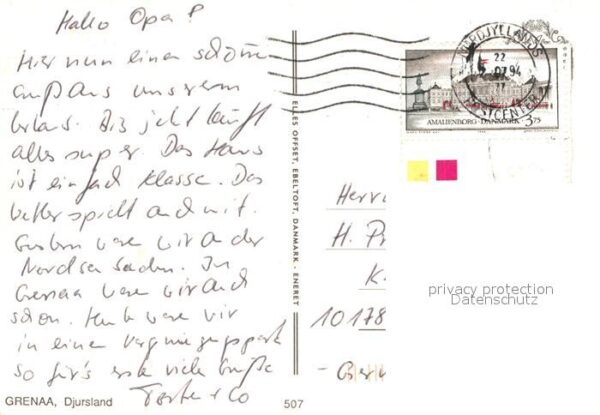 Hallo Opa!
Hier nun einen schönen
Gruß aus unserem
Urlaub. Bis jetzt läuft
alles super. Das Haus
ist einfach Klasse. Das
Wetter spielt auch mit.
Gestern waren wir an der
Nordsee baden. In
Grenaa waren wir auch
schon. Heute waren wir
in einem Vergnügungspark
So für's erste viele Grüße
& Co
GRENAA, Djursland
507
ELLES OFFSET, EBELTOFT, DANMARK - ENERET
NORDJYLLANDS
22
07.94
POSTCENTER
AMALIENBORG · DANMARK 3.75
Herrn
H. Pr
K
10178
- Ger
privacy protection
Datenschutz